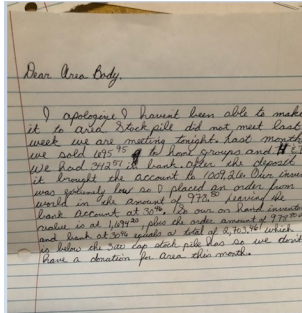 Dear Area Body,
I apologize I havint been able to make
it to area. Stock pile did not meet last
week we are meeting tonight. Last month
we sold 695.95 to home groups and H & I
We had 342.51 in bank. After the deposit
it brought the account to 1009.26. Our inven
was extremly low so I placed an order from
world in the amount of 978.80 leaving the
bank account at 30.46. So our on hand inventory
value is at 1,694.20, plus the order amount of 978.80
and bank at 30.46 equals a total of 2,703.46 which
is below the cap stock pile has so we don't
have a donation for area this month.